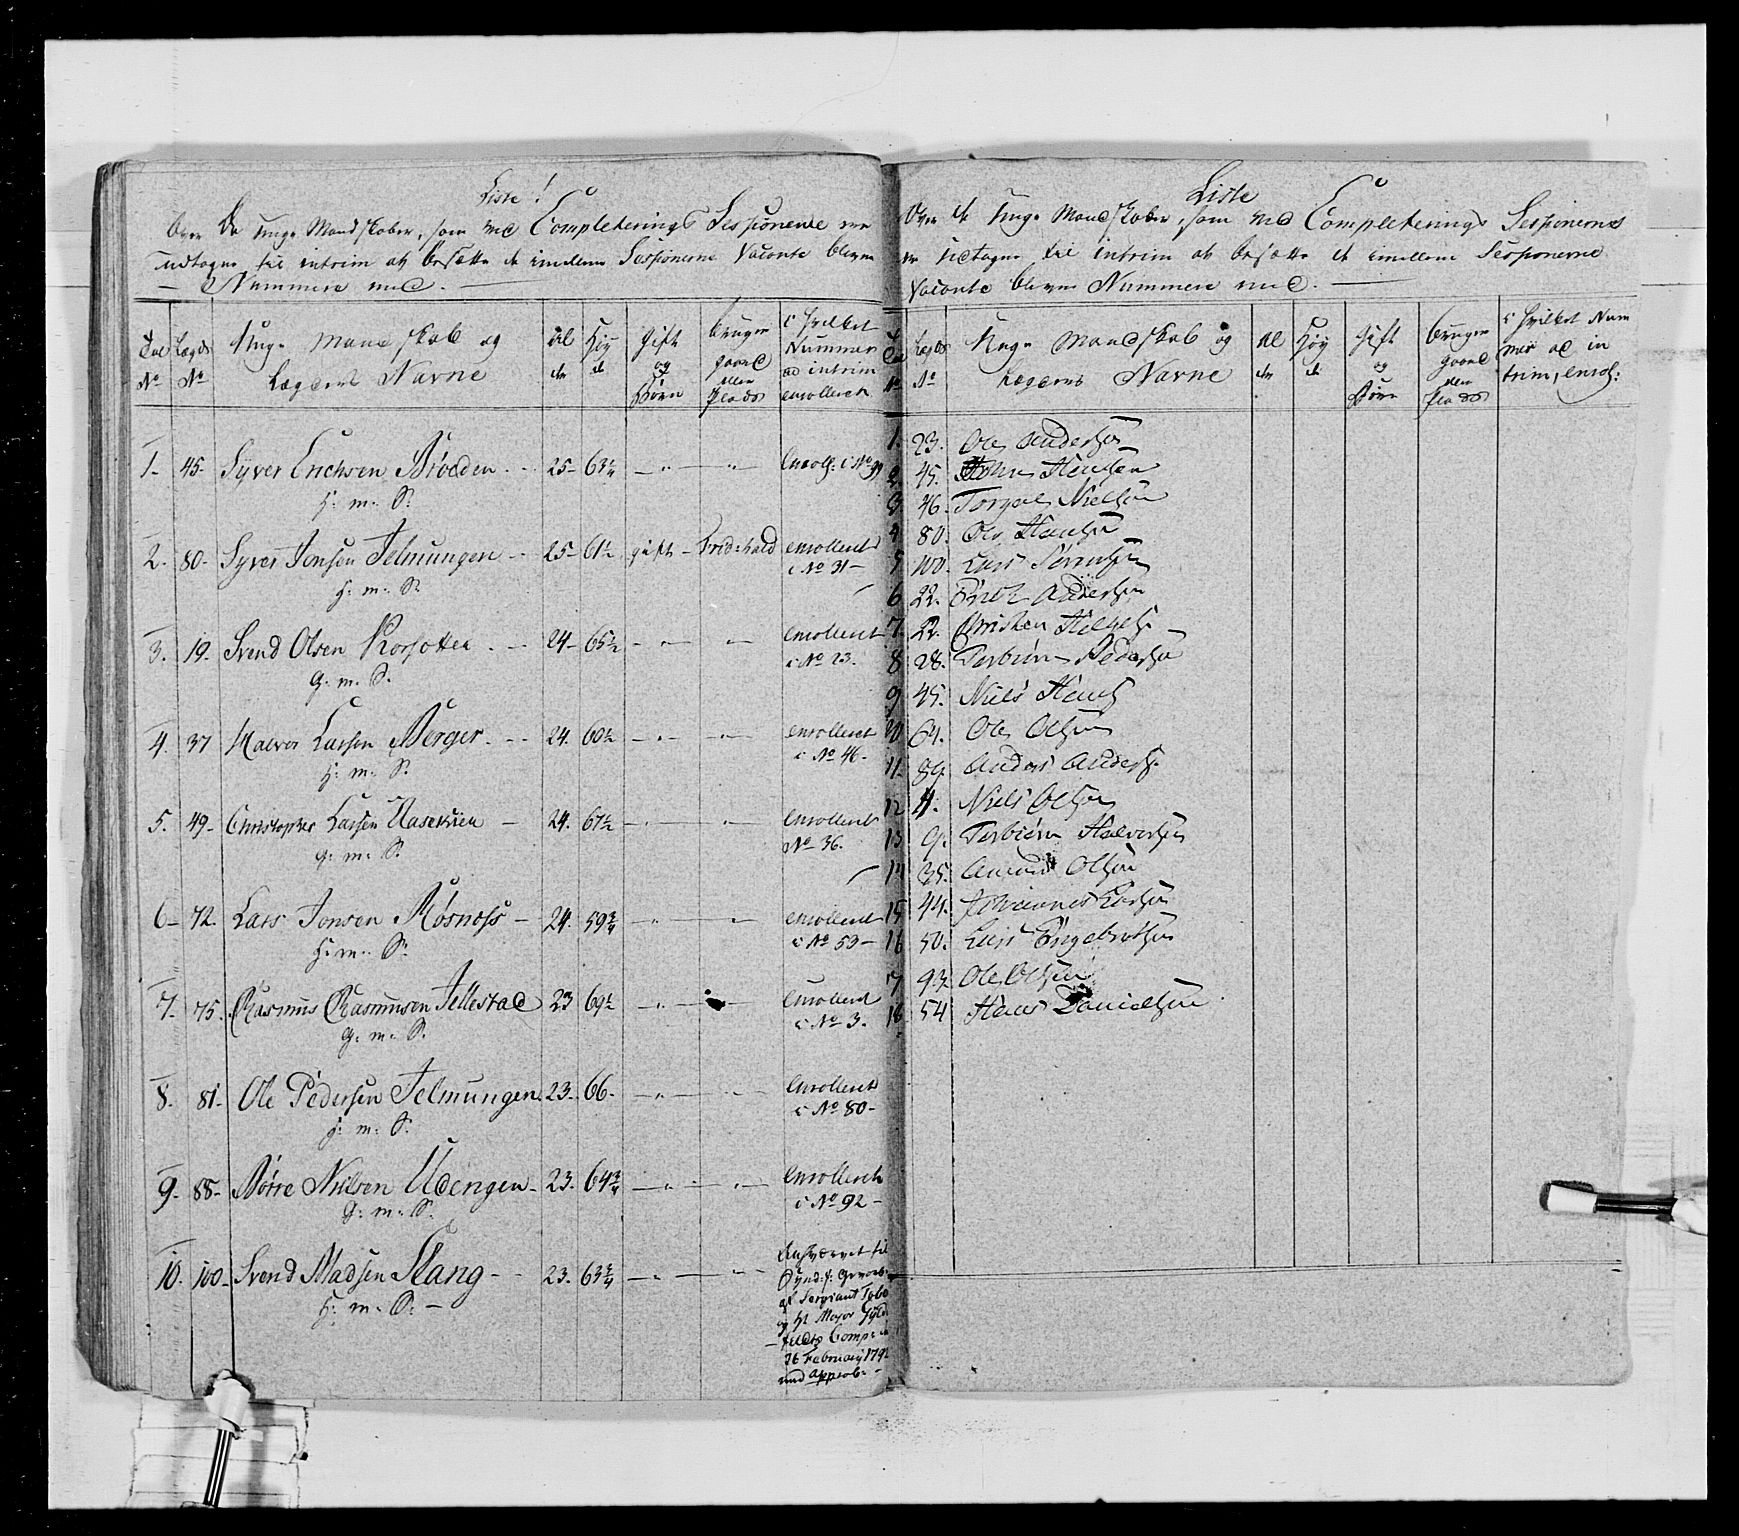 Liste!
Over De Unge Mandskaber, som ved Completerings Sessionerne ere
udtagne til intrim at besætte de imellem Sessionerne Vacante blevne
Nummere med.
Tal No
Lægds No
Unge Mandskab og Lægdens Navne
Al der
Høy de
Gift og Børn
bruger gaard eller plads
i hvilket Nummer ad intrim enrolleret
1. 45. Syver Erichsen Brødden. 25 63 1/4 Enroll: i No 99
H: m: S:
2. 80. Syver Jonsen Jelmungen 25 61 1/2 gift Fridr:hald enrolleret i No 31
H: m: S:
3. 19. Svend Olsen Korsotten. 24 65 1/2 enrolleret i No 23.
G: m: S.
4. 37 Halvor Larsen Berger. 24. 60 1/2 enrolleret i No 46.
H: m: S.
5. 49. Christopher Larsen 24. 67 1/2 enrolleret No 36.
G: m: S.
6 72. Lars Jonsen Røsnøss 24. 59 3/4 enrolleret i No 53
H: m: S:
7. 75. Rasmus Rasmusen Tellestad 23 69 1/2 Enrolleret i No 3.
G: m: S.
8. 81. Ole Pedersen Jelmungen. 23. 66. Enrolleret i No 80
H: m: S.
9. 88. Børre Nielsen Udengen 23. 64 3/4 Enrolleret i No 92
G: m: S.
10. 100. Svend Madsen Stang 23. 63 3/4
H: m: S:
til
af Sergiant
og H Major
feldts Comp:
26 February 179
med approb:
Liste
Over de Unge Mandskaber, som ved Completerings Sessionerne
er udtagne til intrim at besætte de imellem Sessionerne
Vacante blevne Nummere med.
Tal No
Lægds No
Unge Mandskab og Lægdens Navne
Al der
Høy de
Gift og Børn
bruger gaard eller plads
i hvilket Num mer ad in trim, enrol:
1. 23. Ole Andersen
2. 45. Hansen
3 46. Torger Nielsen
4 80. Ole Hansen
5 100. Lars
6 22. Erich Andersen
7. 22. Christen
8 28. Torbiørn Pedersen
9 45. Niels Hans
10 64. Ole Olsen
11. 89. Anders Anders:
12 4. Niels Olsen
13 9. Torbiørn Halvorsen
14 35. Amund Olsen
15 44. Johannes Larsen
16 50. Lars Engebretsen
17 93. Ole Olsen
18. 54 Hans Danielsen